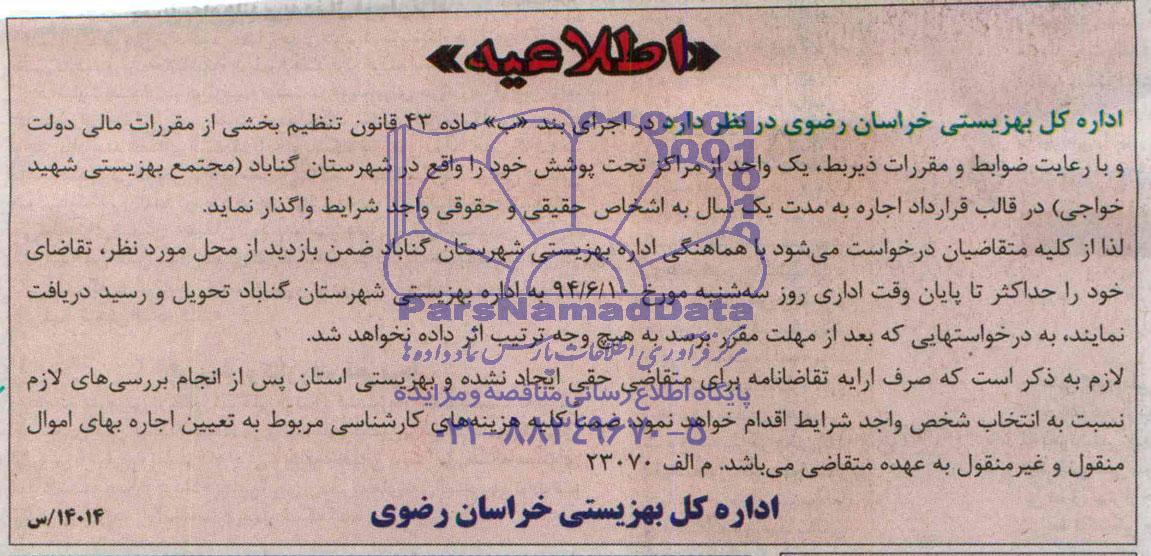 «اطلاعیه»
اداره کل بهزیستی خراسان رضوی در نظر دارد در اجرای بند «ب» ماده ۴۳ قانون تنظیم بخشی از مقررات مالی دولت
و با رعایت ضوابط و مقررات ذیربط، یک واحد از مراکز تحت پوشش خود را واقع در شهرستان گناباد (مجتمع بهزیستی شهید
خواجی) در قالب قرارداد اجاره به مدت یک سال به اشخاص حقیقی و حقوقی واجد شرایط واگذار نماید.
لذا از کلیه متقاضیان درخواست می‌شود با هماهنگی اداره بهزیستی شهرستان گناباد ضمن بازدید از محل مورد نظر، تقاضای
خود را حداکثر تا پایان وقت اداری روز سه‌شنبه مورخ ۹۴/۶/۱۰ به اداره بهزیستی شهرستان گناباد تحویل و رسید دریافت
ParsNamadData
نمایند، به درخواستهایی که بعد از مهلت مقرر برسد به هیچ وجه ترتیب اثر داده نخواهد شد.
مرکز فرآوری اطلاعات پارس نماد داده‌ها
لازم به ذکر است که صرف ارایه تقاضانامه برای متقاضی حقی ایجاد نشده و بهزیستی استان پس از انجام بررسی‌های لازم
پایگاه اطلاع رسانی مناقصه و مزایده
نسبت به انتخاب شخص واجد شرایط اقدام خواهد نمود. ضمناً کلیه هزینه‌های کارشناسی مربوط به تعیین اجاره بهای اموال
۰۲۱-۸۸۳۴۹۶۷۰-۵
منقول و غیرمنقول به عهده متقاضی می‌باشد. م الف ۲۳۰۷۰
اداره کل بهزیستی خراسان رضوی
۱۴۰۱۴/س